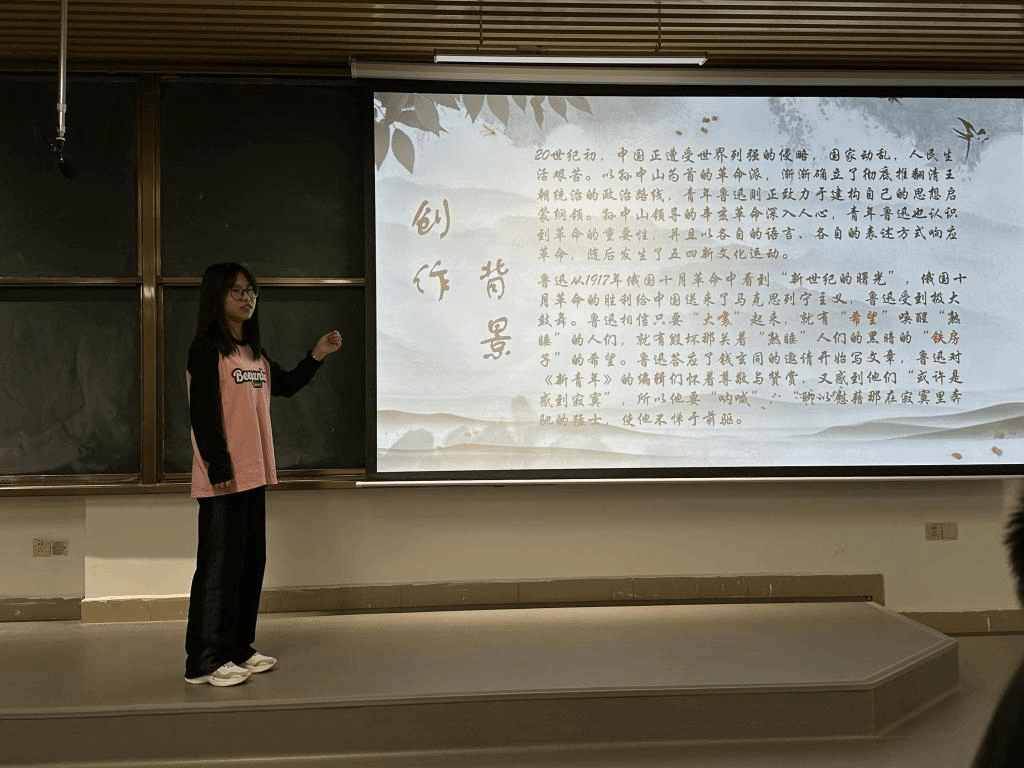 创作
背景
20世纪初，中国正遭受世界列强的侵略，国家动乱，人民生
活艰苦。以孙中山为首的革命派，渐渐确立了彻底推翻清王
朝统治的政治路线，青年鲁迅则正致力于建构自己的思想启
蒙纲领。孙中山领导的辛亥革命深入人心，青年鲁迅也认识
到革命的重要性，并且以各自的语言、各自的表述方式响应
革命，随后发生了五四新文化运动。
鲁迅从1917年俄国十月革命中看到“新世纪的曙光”，俄国十
月革命的胜利给中国送来了马克思列宁主义，鲁迅受到极大
鼓舞。鲁迅相信只要“大嚷”起来，就有“希望”唤醒“熟
睡”的人们，就有毁坏那关着“熟睡”人们的黑暗的“铁房
子”的希望。鲁迅答应了钱玄同的邀请开始写文章，鲁迅对
《新青年》的编辑们怀着尊敬与赞赏，又感到他们“或许是
感到寂寞”，所以他要“呐喊”，“聊以慰藉那在寂寞里奔
驰的猛士，使他不惮于前驱。